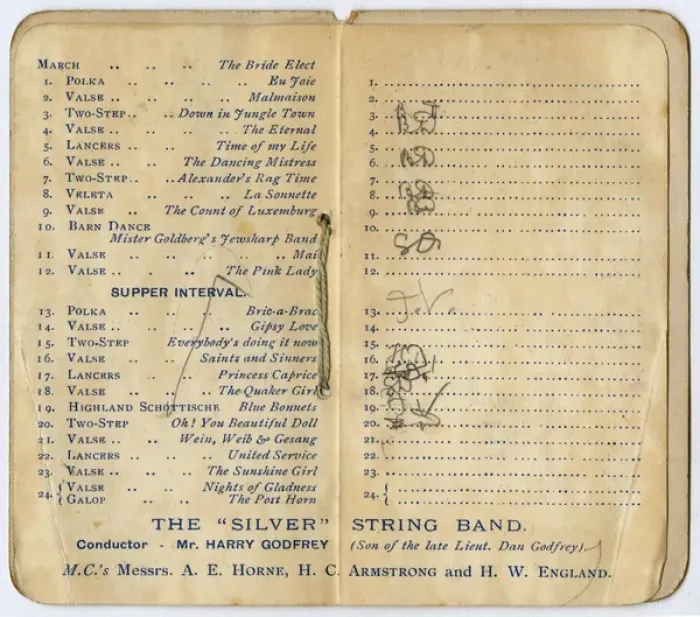 MARCH .. .. .. The Bride Elect
1. POLKA .. .. .. .. Eu Joie
2. VALSE .. .. .. .. Malmaison
3. TWO-STEP.. .. Down in Jungle Town
4. VALSE .. .. .. .. The Eternal
5. LANCERS .. .. Time of my Life
6. VALSE .. .. The Dancing Mistress
7. TWO-STEP.. .. Alexander's Rag Time
8. VELETA .. .. .. La Sonnette
9. VALSE .. The Count of Luxemburg
10. BARN DANCE
Mister Goldberg's Jewsharp Band
11. VALSE .. .. .. .. .. Mai
12. VALSE .. .. .. The Pink Lady
SUPPER INTERVAL.
13. POLKA .. .. .. Bric-a-Brac
14. VALSE .. .. .. Gipsy Love
15. TWO-STEP Everybody's doing it now
16. VALSE .. .. Saints and Sinners
17. LANCERS .. .. Princess Caprice
18. VALSE .. .. .. The Quaker Girl
19. HIGHLAND SCHOTTISCHE Blue Bonnets
20. TWO-STEP Oh! You Beautiful Doll
21. VALSE .. .. Wein, Weib & Gesang
22. LANCERS .. .. .. United Service
23. VALSE .. .. .. The Sunshine Girl
24. { VALSE .. .. Nights of Gladness
GALOP .. .. The Post Horn
1.
2.
3.
4.
5.
6.
7.
8.
9.
10.
11.
12.
13.
14.
15.
16.
17.
18.
19.
20.
21.
22.
23.
24. {
THE "SILVER" STRING BAND.
Conductor - Mr. HARRY GODFREY (Son of the late Lieut. Dan Godfrey).
M.C.'s Messrs. A. E. HORNE, H. C. ARMSTRONG and H. W. ENGLAND.